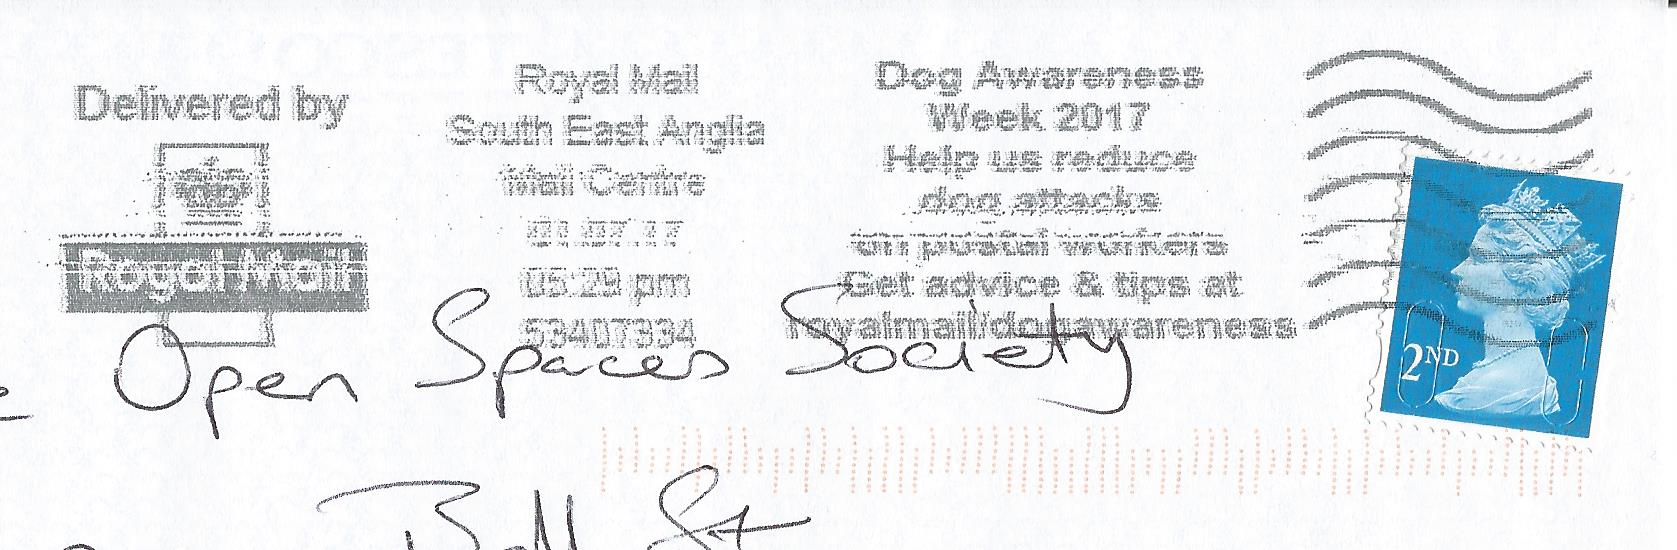 Delivered by
Royal Mail
Royal Mail
South East Anglia
Mail Centre
05:29 pm
53407334
Dog Awareness
Week 2017
Help us reduce
dog attacks
on postal workers
Get advice & tips at
royalmail/dogawareness
2ND
Open Spaces Society
Bell St